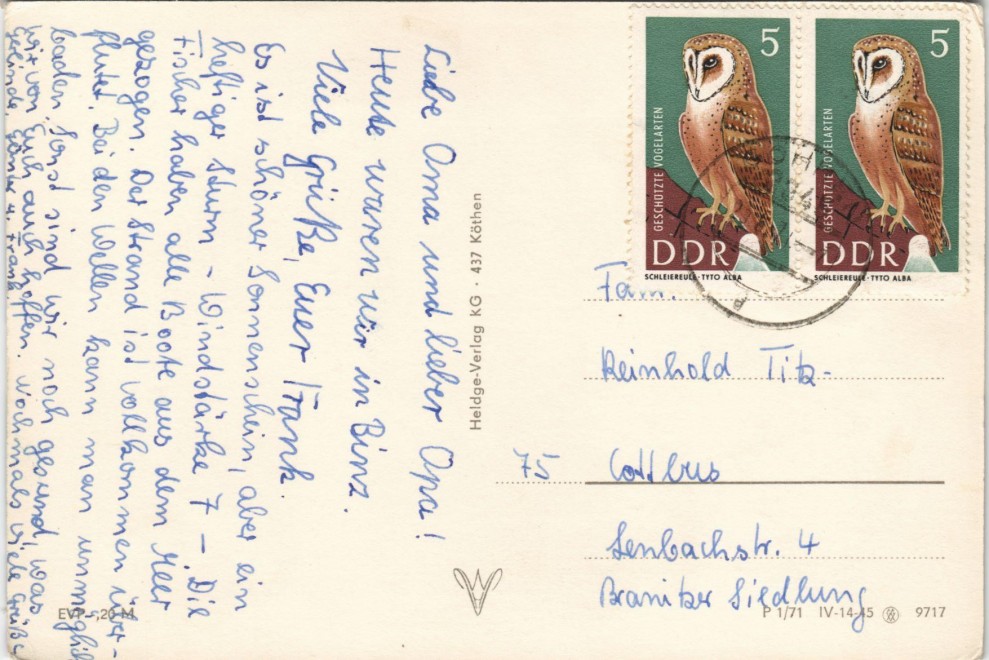 Liebe Oma und lieber Opa!
Heute waren wir in Binz.
Viele Grüße, Euer Frank.
Es ist schöner Sonnenschein, aber ein
heftiger Sturm - Windstärke 7 -. Die
Fischer haben alle Boote aus dem Meer
gezogen. Der Strand ist vollkommen über-
flutet. Bei den Wellen kann man unmöglich
baden. Sonst sind wir noch gesund, was
wir von Euch auch hoffen. Nochmals viele Grüße
u. Frank.
Heldge-Verlag KG · 437 Köthen
EVP -,20 M
5
GESCHÜTZTE VOGELARTEN
DDR
SCHLEIEREULE · TYTO ALBA
5
GESCHÜTZTE VOGELARTEN
DDR
SCHLEIEREULE · TYTO ALBA
Fam.
Reinhold Titz
75 Cottbus
Lenbachstr. 4
Branitzer Siedlung
P 1/71 IV-14-45 9717